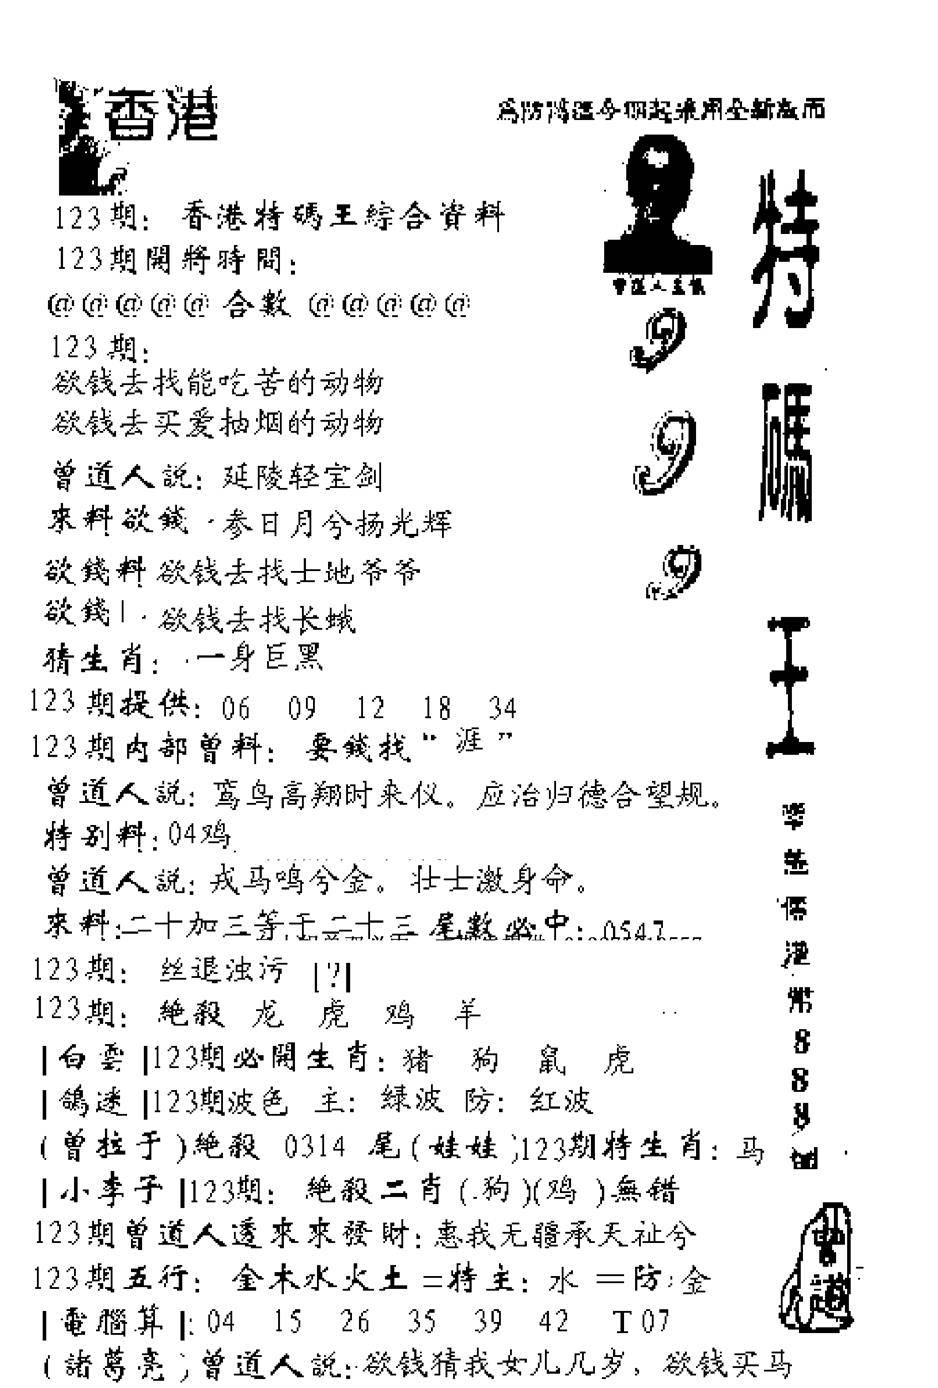 香港
123期: 香港特碼王綜合資料
123期開將時間:
@@@@@合數@@@@@
123期:
欲钱去找能吃苦的动物
欲钱去买爱抽烟的动物
曾道人説: 延陵轻宝剑
來料欲錢 · 参日月兮扬光辉
欲錢料 欲钱去找士地爷爷
欲錢|· 欲钱去找长蛾
猜生肖: ·一身巨黑
123期提供: 06 09 12 18 34
123期内部曾料: 要錢找“涯”
曾道人説: 鸾鸟高翔时来仪。应治归德合望规。
特别料: 04鸡
曾道人説: 戎马鸣兮金。壮士激身命。
來料:二十加三等于二十三 尾數必中: 0547
123期: 丝退浊污 |?|
123期: 絶殺 龙 虎 鸡 羊
|白雲|123期必開生肖: 猪 狗 鼠 虎
|鴿迷|123期波色 主: 绿波 防: 红波
(曾拉于)絶殺 0314 尾(娃娃)123期特生肖: 马
|小李子|123期: 絶殺二肖(.狗)(鸡 )無错
123期曾道人透來來發財: 惠我无疆承天祉兮
123期五行: 金木水火土=特主: 水 =防: 金
|電腦算|: 04 15 26 35 39 42 T07
(諸葛亮)曾道人説: 欲钱猜我女儿几岁, 欲钱买马
今期起采用全新版面
9
9
9
特
碼
王
港
幣
8
8
8
曾道